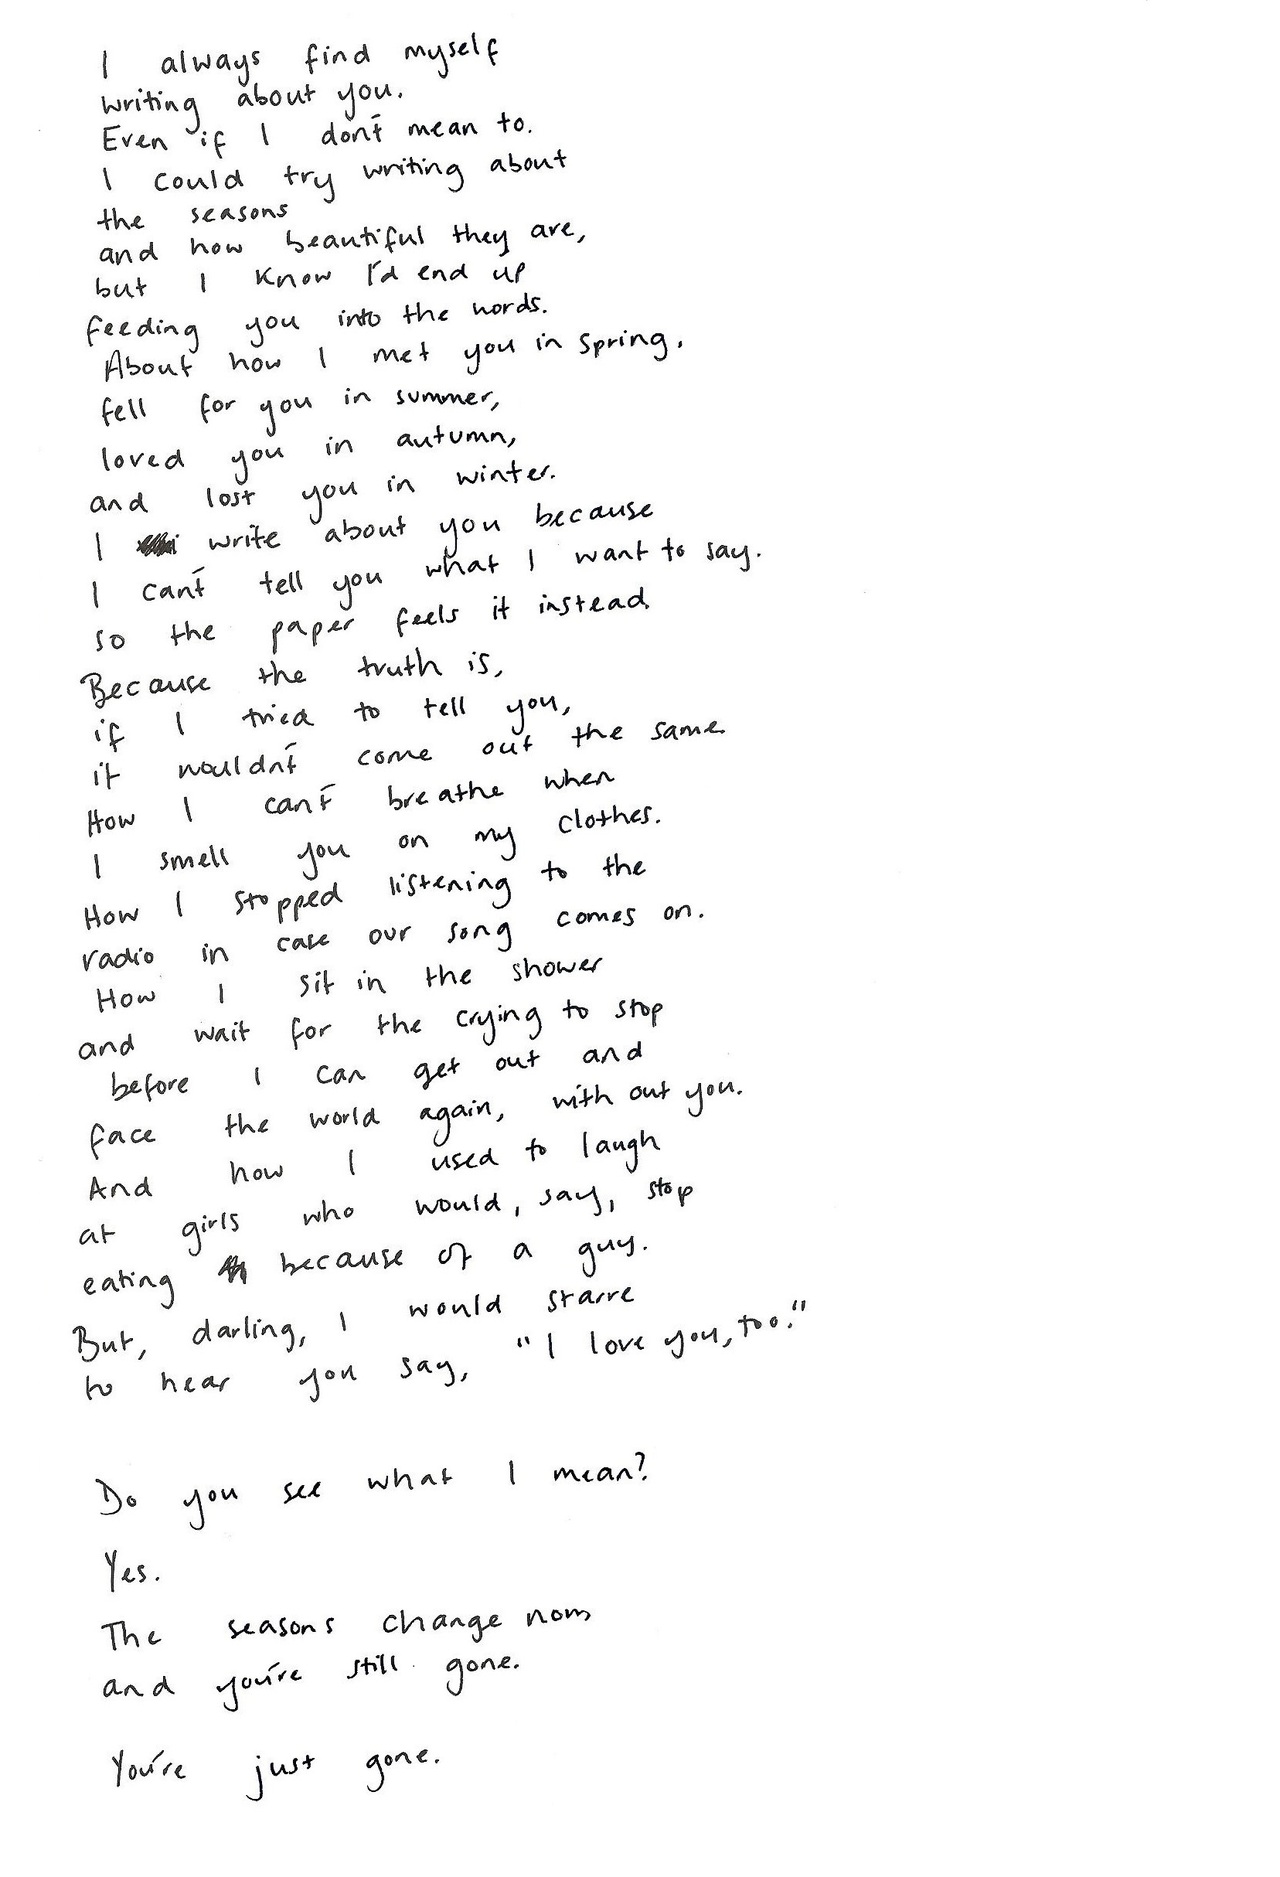 I always find myself
writing about you.
Even if I don't mean to.
I could try writing about
the seasons
and how beautiful they are,
but I know I'd end up
feeding you into the words.
About how I met you in spring,
fell for you in summer,
loved you in autumn,
and lost you in winter.
I write about you because
I can't tell you what I want to say.
so the paper feels it instead.
Because the truth is,
if I tried to tell you,
it wouldn't come out the same.
How I can't breathe when
I smell you on my clothes.
How I stopped listening to the
radio in case our song comes on.
How I sit in the shower
and wait for the crying to stop
before I can get out and
face the world again, with out you.
And how I used to laugh
at girls who would, say, stop
eating because of a guy.
But, darling, I would starve
to hear you say, "I love you, too."
Do you see what I mean?
Yes.
The seasons change now
and you're still gone.
You're just gone.